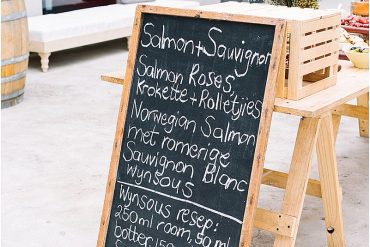 Salmon + Sauvignon
Salmon Roses,
Krokette + Rolletjies
Norwegian Salmon
met romerige
Sauvignon Blanc
wynsous
Wynsous resep:
250ml room, 50 ml
botter